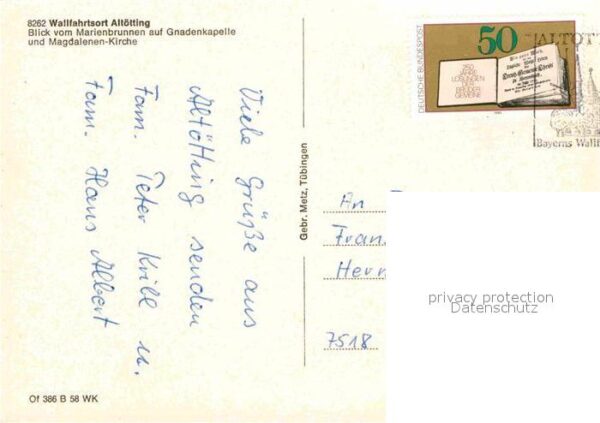 8262 Wallfahrtsort Altötting
Blick vom Marienbrunnen auf Gnadenkapelle
und Magdalenen-Kirche
Viele Grüße aus
Altötting senden
Fam. Peter Krill u.
Fam. Hans Albert
Of 386 B 58 WK
Gebr. Metz, Tübingen
DEUTSCHE BUNDESPOST
50
250
JAHRE
LOSUNGEN
DER
BRÜDER-
GEMEINE
ALTÖTT
Bayerns Wallf
An
Fran
Herr
7518
privacy protection
Datenschutz